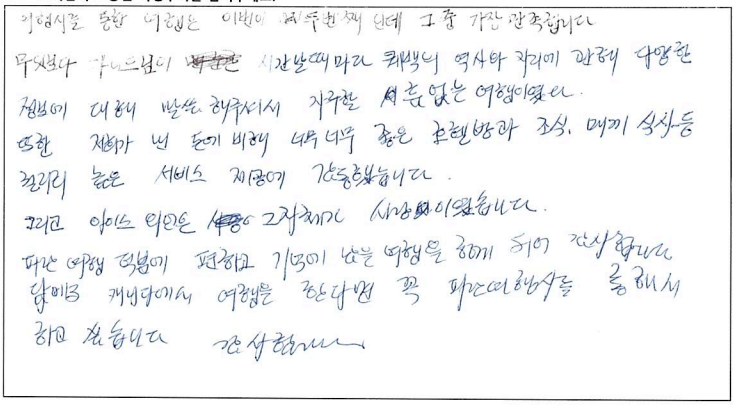 여행사를 통한 여행은 이번이 두번째 인데 그 중 가장 만족합니다
무엇보다 시간날때마다 퀘백의 역사와 지리에 관해 다양한
정보에 대해 말씀 해주셔서 지루할 틈 없는 여행이였다.
또한 제가 낸 돈에 비해 너무 너무 좋은 호텔방과 조식, 매끼 식사등
퀄리티 높은 서비스 제공에 감동했습니다.
그리고 아이스 와인은 그 자체가 사랑이였습니다.
파란 여행 덕분에 편하고 기억에 남는 여행을 하게 되어 감사합니다
담에도 캐나다에서 여행을 한다면 꼭 파란여행사를 통해서
하고 싶습니다 감사합니다